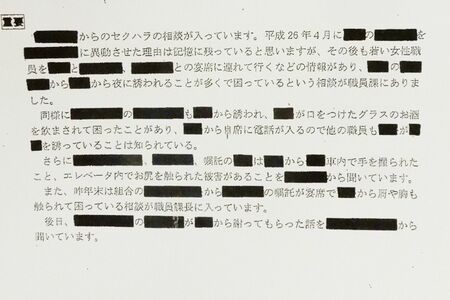 重要
■■からのセクハラの相談が入っています。平成26年4月に■■の■■を
■■に異動させた理由は記憶に残っていると思いますが、その後も若い女性職
員を■■と■■、■■との宴席に連れて行くなどの情報があり、■■の■■
■■から■■から夜に誘われることが多くで困っているという相談が職員課にありま
した。
同様に■■の■■も■■から誘われ、■■が口をつけたグラスのお酒
を飲まされて困ったことがあり、■■から自席に電話が入るので他の職員も■■が■■
■■を誘っていることは知られている。
さらに■■、■■、嘱託の■■は■■から■■車内で手を握られた
こと、エレベータ内でお尻を触られた被害があることを■■から聞いています。
また、昨年末は組合の■■から■■の嘱託が宴席で■■から肩や胸も
触られて困っている相談が職員課長に入っています。
後日、■■の■■が■■から謝ってもらった話を■■から
聞いています。